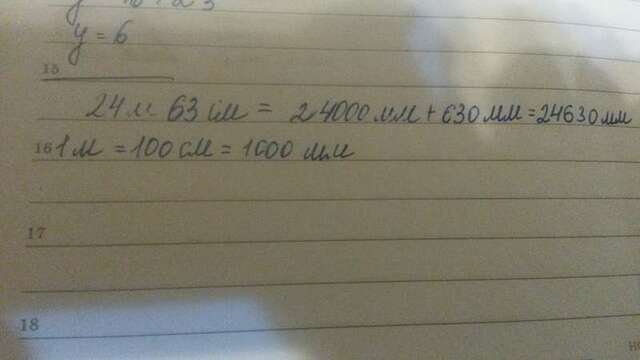 y = 6
15
24 м 63 см = 24000 мм + 630 мм = 24630 мм
16 1 м = 100 см = 1000 мм
17
18